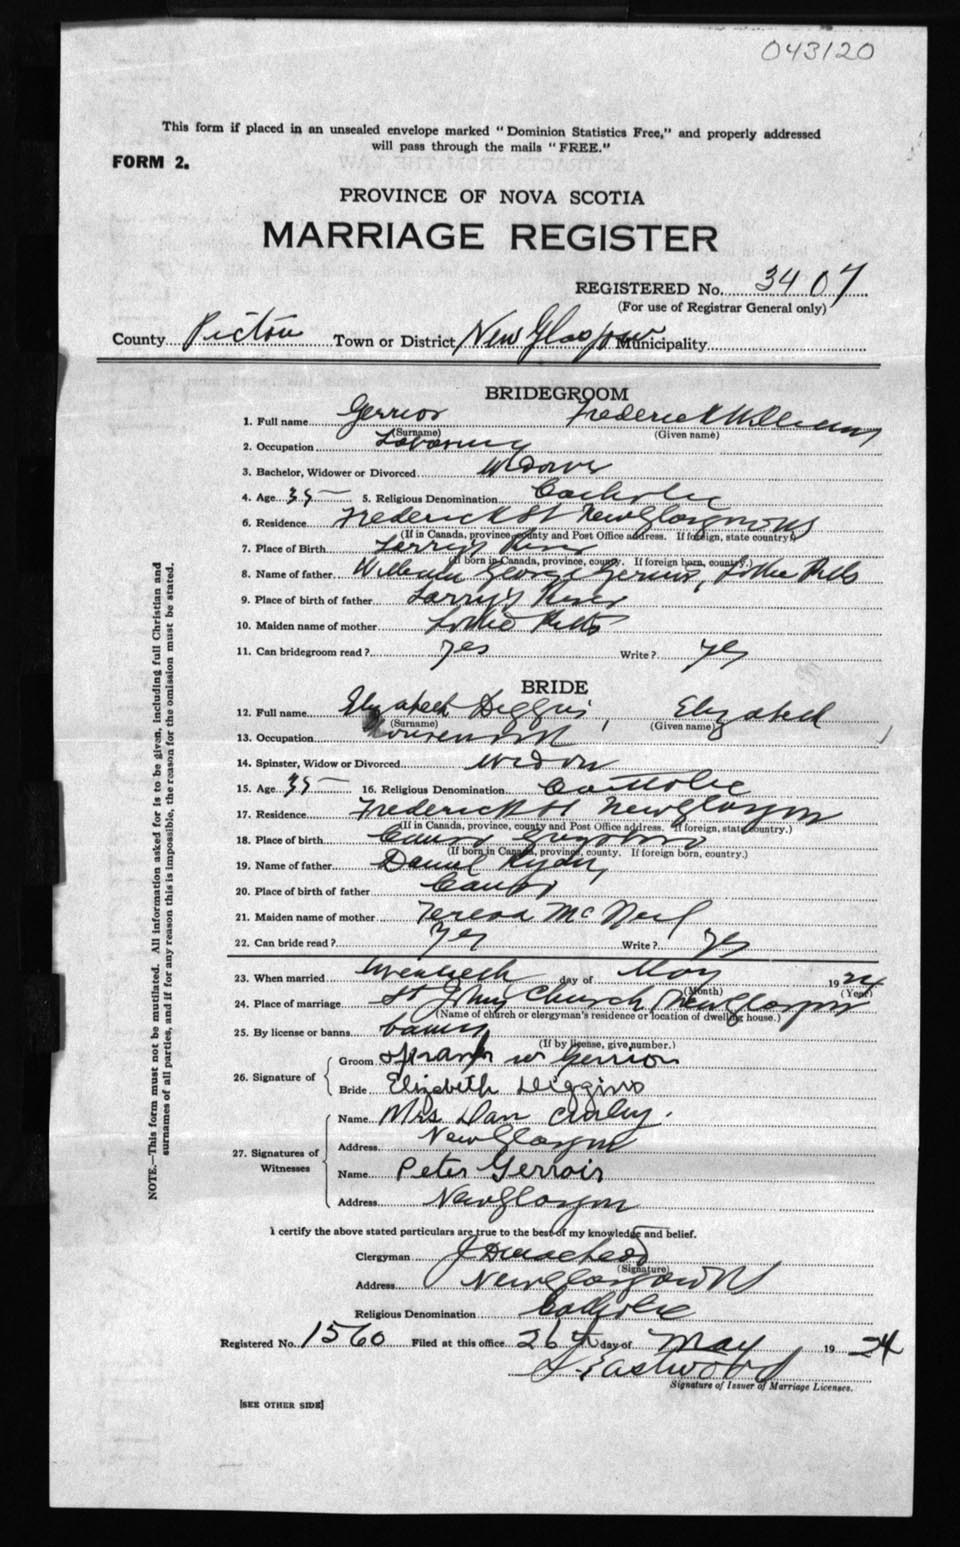 043120
This form if placed in an unsealed envelope marked "Dominion Statistics Free," and properly addressed
will pass through the mails "FREE."
FORM 2.
PROVINCE OF NOVA SCOTIA
MARRIAGE REGISTER
REGISTERED No. 3407
(For use of Registrar General only)
County Pictou Town or District New Glasgow Municipality
BRIDEGROOM
1. Full name Gerrior Frederick William
(Surname) (Given name)
2. Occupation
3. Bachelor, Widower or Divorced Widower
4. Age 35 5. Religious Denomination Catholic
6. Residence Frederick St New Glasgow NS
(If in Canada, province, county and Post Office address. If foreign, state country.)
7. Place of Birth Larry's River
(If born in Canada, province, county. If foreign born, country.)
8. Name of father William George Gerrior, Lottie Pitts
9. Place of birth of father Larry's River
10. Maiden name of mother Lottie Pitts
11. Can bridegroom read? yes Write? yes
BRIDE
12. Full name Elizabeth Diggins, Elizabeth
(Surname) (Given name)
13. Occupation
14. Spinster, Widow or Divorced Widow
15. Age 35 16. Religious Denomination Catholic
17. Residence Frederick St New Glasgow
(If in Canada, province, county and Post Office address. If foreign, state country.)
18. Place of birth Canso
(If born in Canada, province, county. If foreign born, country.)
19. Name of father Daniel Ryan,
20. Place of birth of father Canso
21. Maiden name of mother Teresa McNeil
22. Can bride read? Yes Write? Yes
23. When married twentieth day of May 1924
(Month) (Year)
24. Place of marriage St Johns Church, New Glasgow
(Name of church or clergyman's residence or location of dwelling house.)
25. By license or banns banns
(If by license, give number.)
26. Signature of
Groom w Gerrior
Bride Elizebith Diggins
27. Signatures of Witnesses
Name Mrs Dan Curley.
Address New Glasgow
Name Peter Gerroir
Address New Glasgow
I certify the above stated particulars are true to the best of my knowledge and belief.
Clergyman
(Signature)
Address New Glasgow NS
Religious Denomination Catholic
Registered No. 1560 Filed at this office 26th day of May 1924
Eastwood
Signature of Issuer of Marriage Licenses.
[SEE OTHER SIDE]
NOTE.—This form must not be mutilated. All information asked for is to be given, including full Christian and
surnames of all parties, and if for any reason this is impossible, the reason for the omission must be stated.